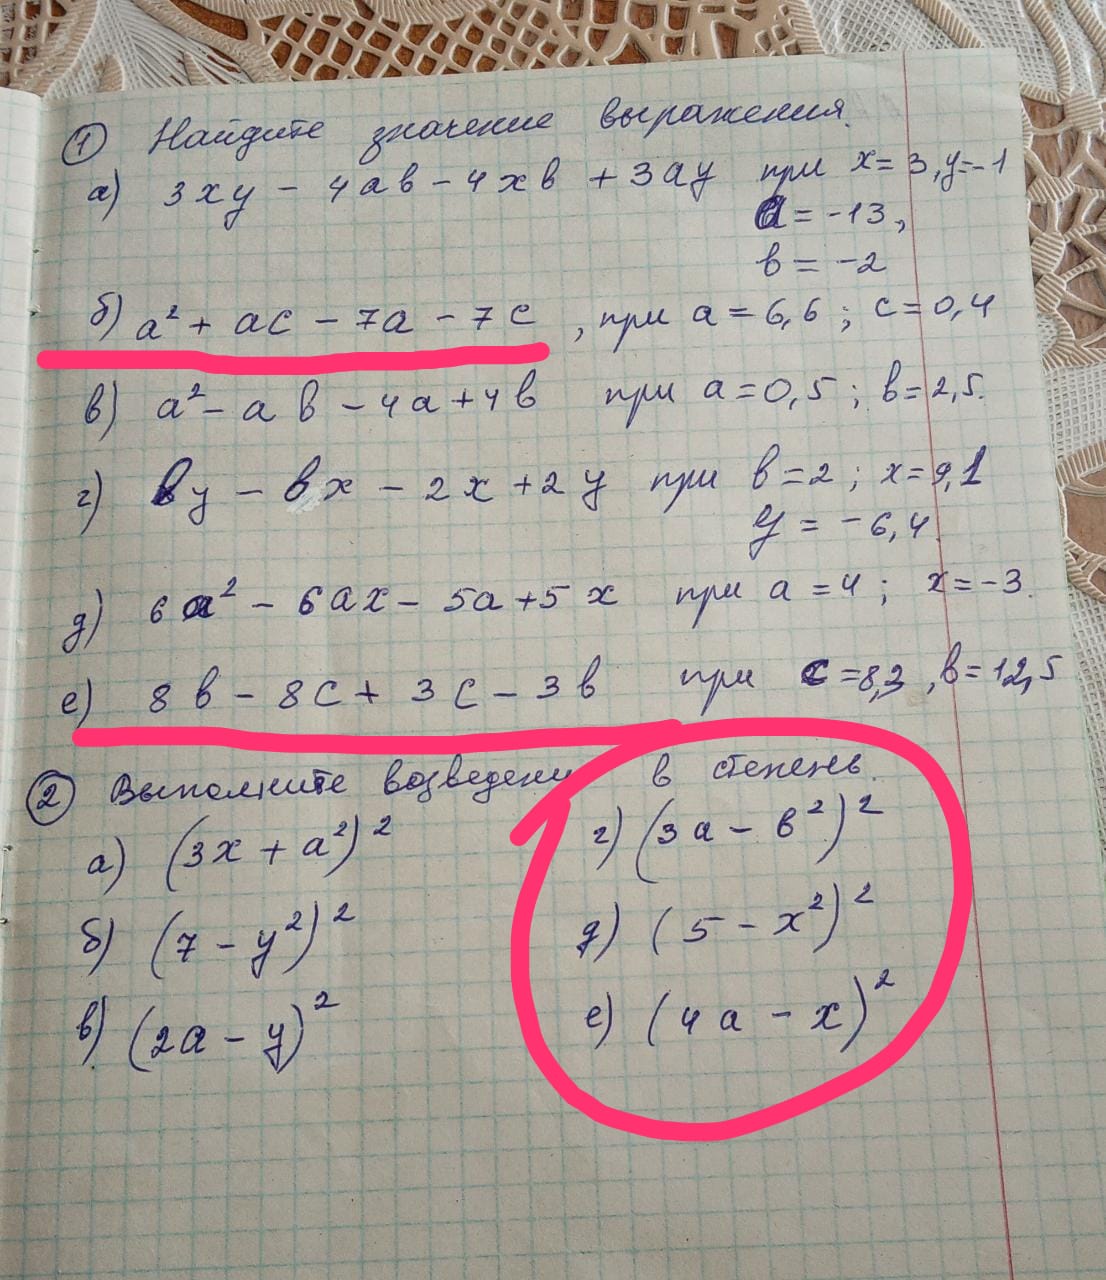 1 Найдите значение выражения.
а) 3xy - 4ab - 4xb + 3ay при x = 3, y = -1
a = -13,
b = -2
б) a² + ac - 7a - 7c, при a = 6,6; c = 0,4
в) a² - ab - 4a + 4b при a = 0,5; b = 2,5.
г) by - bx - 2x + 2y при b = 2; x = 9,1
y = -6,4.
д) 6a² - 6ax - 5a + 5x при a = 4; x = -3.
е) 8b - 8c + 3c - 3b при c = 8,3, b = 12,5
2 Выполните возведени в степень.
а) (3x + a²)² г) (3a - b²)²
б) (7 - y²)² д) (5 - x²)²
в) (2a - y)² е) (4a - x)²